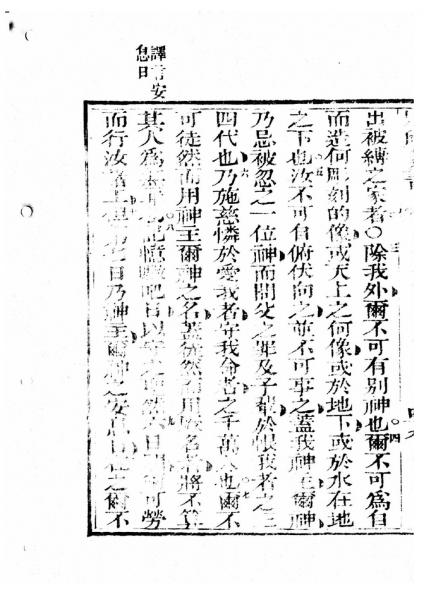 譯言安
息日
出被縛之家者○除我外爾不可有別神也爾不可為自
而造何彫刻的像或天上之何像或於地下或於水在地
之下也汝不可自俯伏向之並不可事之蓋我神主爾神
乃忌被忽之一位神而罰父之罪及子輩於恨我者之三
四代也乃施慈憐於愛我者守我命者之千萬人也爾不
可徒然而用神主爾神之名蓋徒然而用厥名者將不算
其人為無罪也記憶吧日以守之六日可勞
而行汝諸工但第七日乃神主爾神之安息日在之爾不